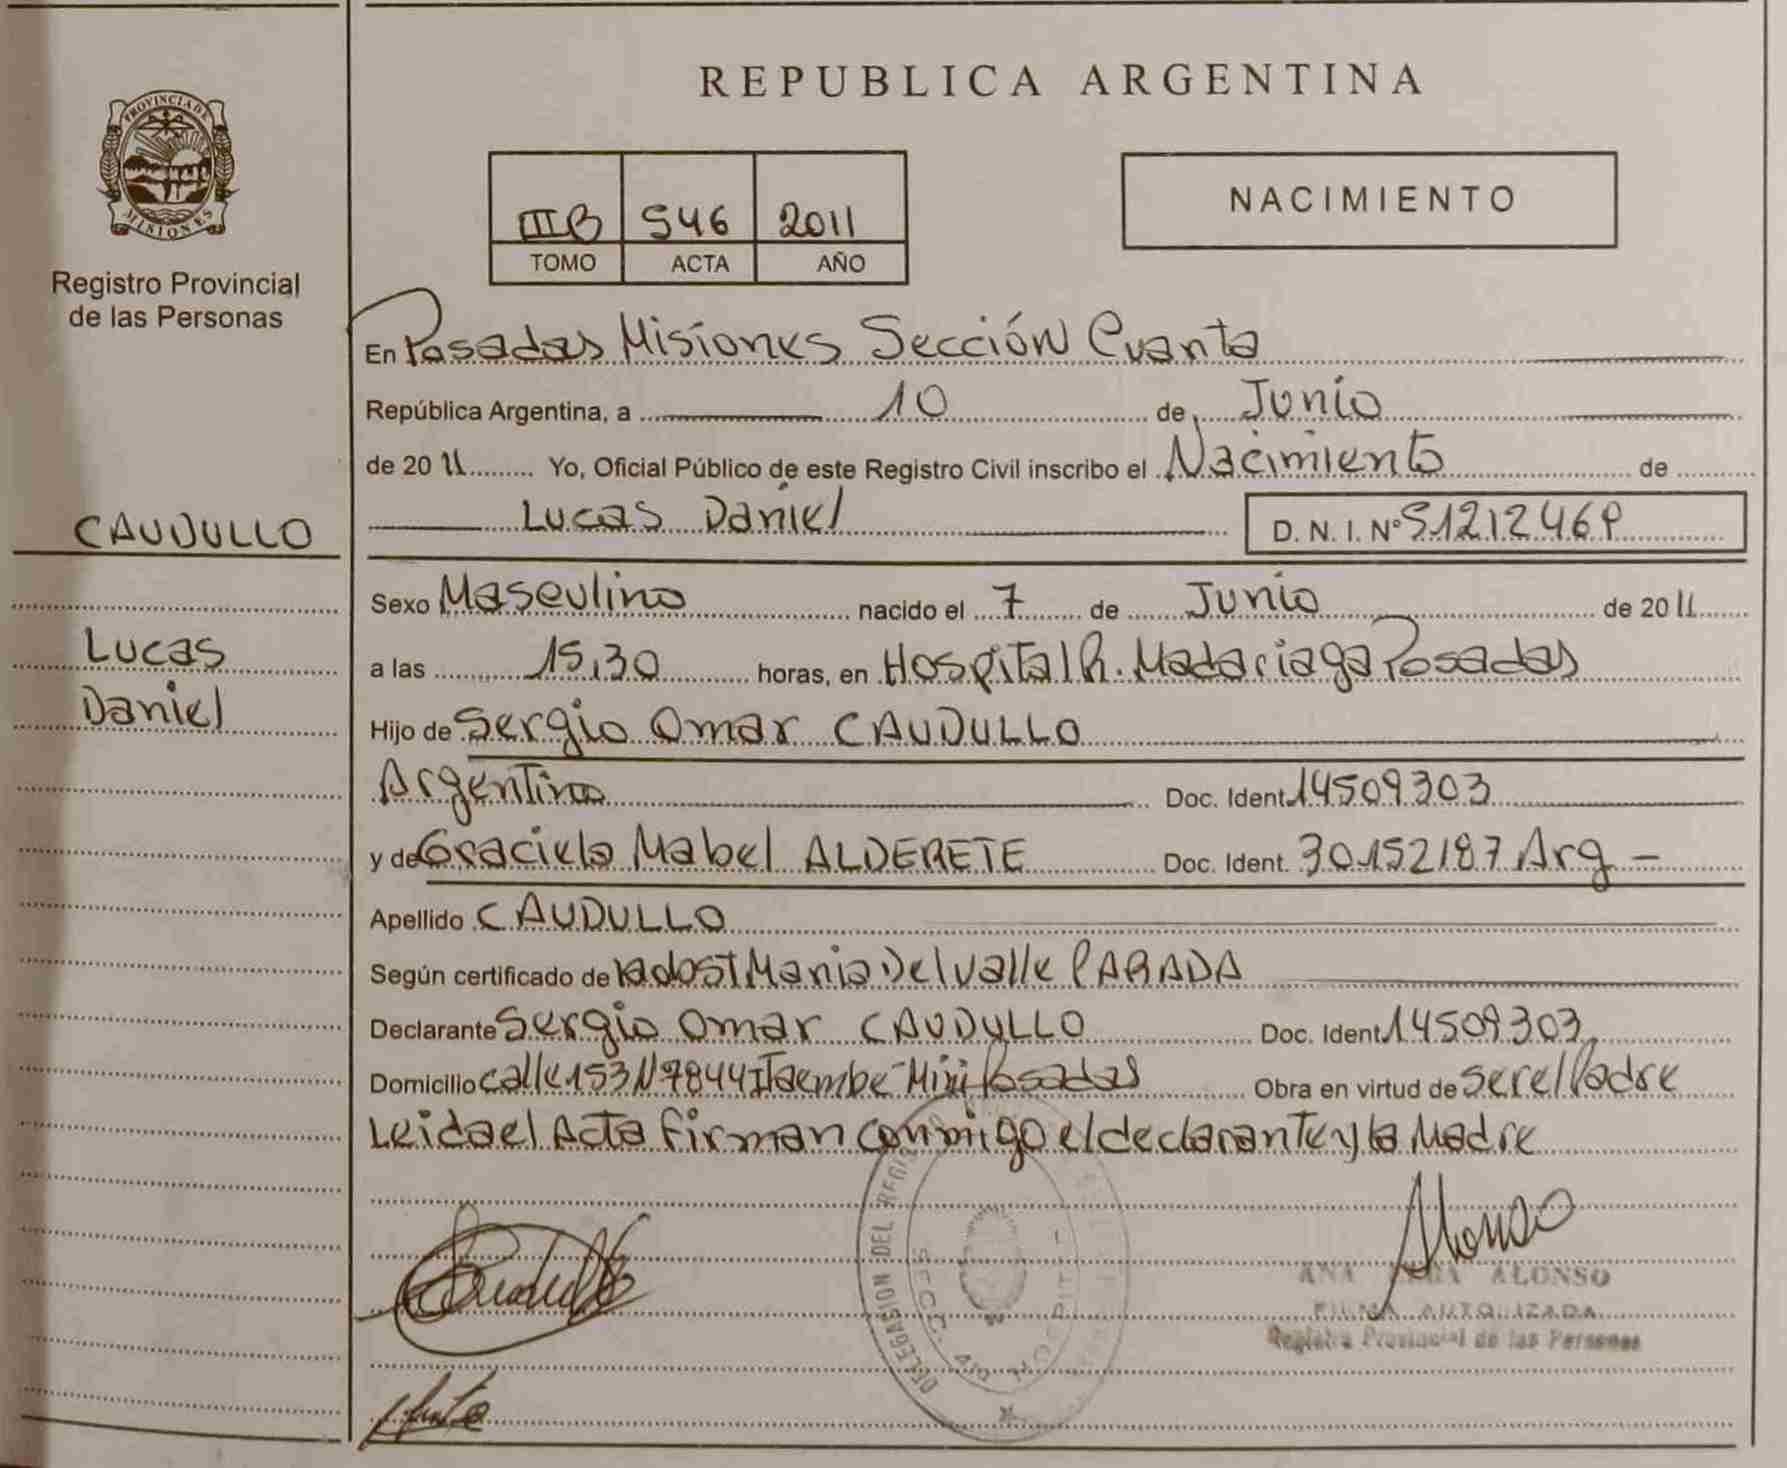 PROVINCIA DE
MISIONES
Registro Provincial
de las Personas
CAUDULLO
Lucas
Daniel
REPUBLICA ARGENTINA
IIIB 546 2011
TOMO ACTA AÑO
NACIMIENTO
En Posadas Misiones Sección Cuarta
República Argentina, a 10 de Junio
de 2011 Yo, Oficial Público de este Registro Civil inscribo el Nacimiento de
Lucas Daniel D. N. I. Nº 51212469
Sexo Masculino nacido el 7 de Junio de 2011
a las 15,30 horas, en Hospital R. Madariaga Posadas
Hijo de Sergio Omar CAUDULLO
Argentino Doc. Ident. 14509303
y de Graciela Mabel ALDERETE Doc. Ident. 30152187 Arg -
Apellido CAUDULLO
Según certificado de Maria Del Valle PARADA
Declarante Sergio Omar CAUDULLO Doc. Ident. 14509303
Domicilio calle 153 N 7844 Itaembe Mini Posadas Obra en virtud de ser el Padre
Leida el Acta firman conmigo el declarante y la Madre
DELEGACION DEL
SECC.
ANA ALONSO
FIRMA AUTORIZADA
Registro Provincial de las Personas